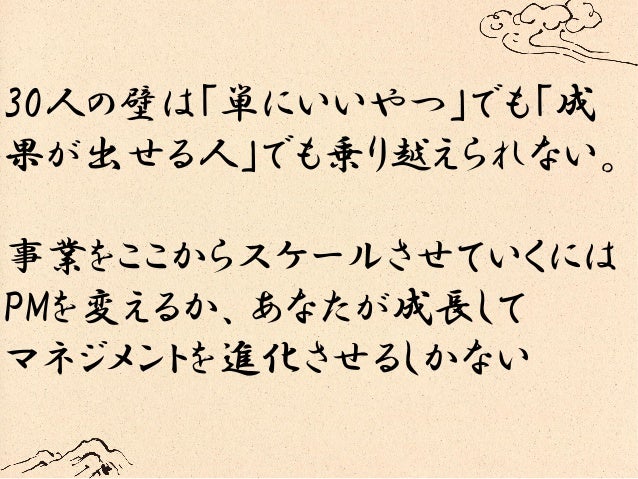 30人の壁は「単にいいやつ」でも「成
果が出せる人」でも乗り越えられない。
事業をここからスケールさせていくには
PMを変えるか、あなたが成長して
マネジメントを進化させるしかない